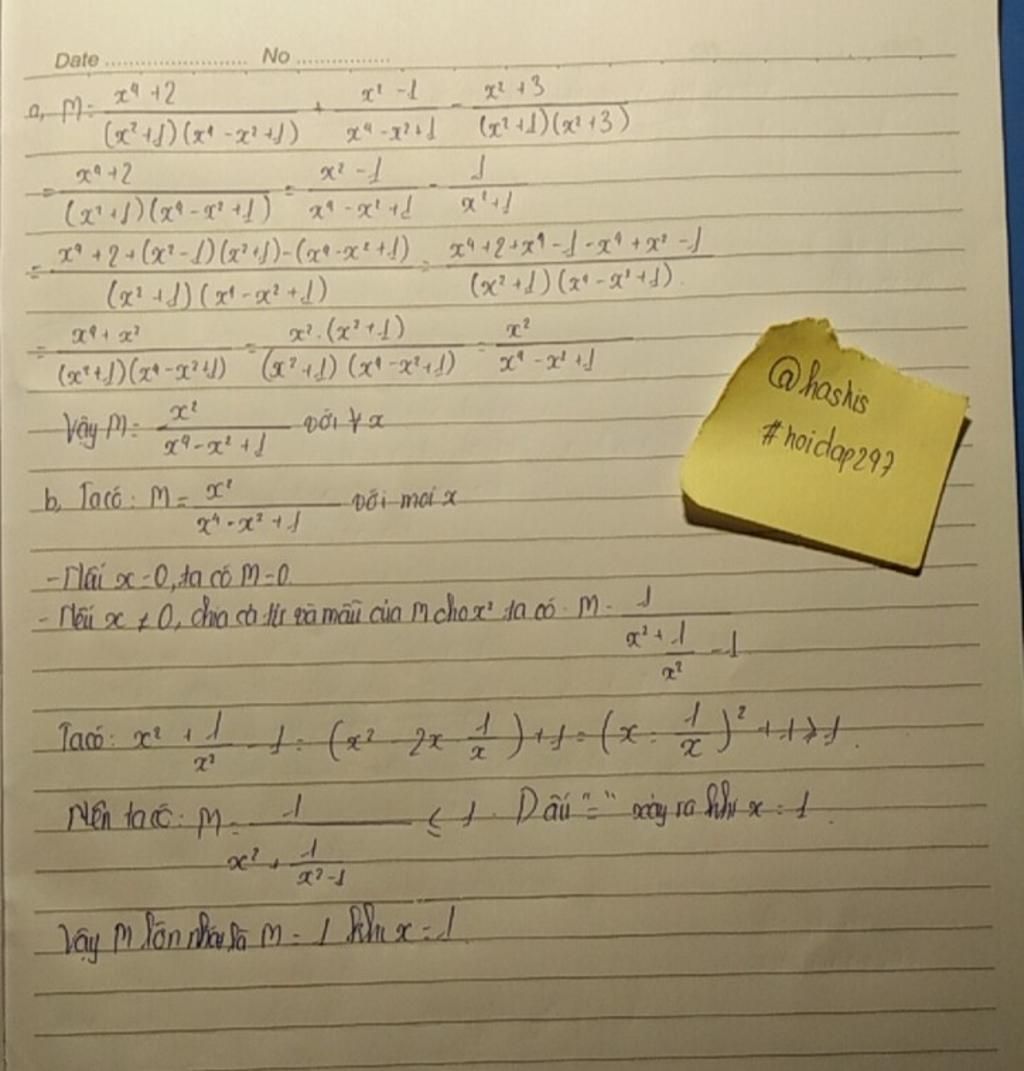 Date ........................ No ................
a, M = (x⁴ + 2)/((x² + 1)(x⁴ - x² + 1)) + (x² - 1)/(x⁴ - x² + 1) - (x² + 3)/((x² + 1)(x² + 3))
= (x⁴ + 2)/((x² + 1)(x⁴ - x² + 1)) = (x² - 1)/(x⁴ - x² + 1) - 1/(x² + 1)
= (x⁴ + 2 + (x² - 1)(x² + 1) - (x⁴ - x² + 1))/((x² + 1)(x⁴ - x² + 1)) = (x⁴ + 2 + x⁴ - 1 - x⁴ + x² - 1)/((x² + 1)(x⁴ - x² + 1))
= (x⁴ + x²)/((x² + 1)(x⁴ - x² + 1)) = (x² . (x² + 1))/((x² + 1)(x⁴ - x² + 1)) = x²/(x⁴ - x² + 1)
Vậy M = x²/(x⁴ - x² + 1) với ∀ x
@hashis
#hoidap247
b, Ta có: M = x²/(x⁴ - x² + 1) với mọi x
- Nếu x = 0, ta có M = 0
- Nếu x ≠ 0, chia cả tử và mẫu của M cho x² ta có M = 1/(x² + 1/x² - 1)
Ta có: x² + 1/x² - 1 = (x² - 2x 1/x) + 1 = (x - 1/x)² + 1 ≥ 1.
Nên ta có: M = 1/(x² + 1/(x² - 1)) ≤ 1. Dấu "=" xảy ra khi x = 1.
Vậy M lớn nhất là M = 1 khi x = 1